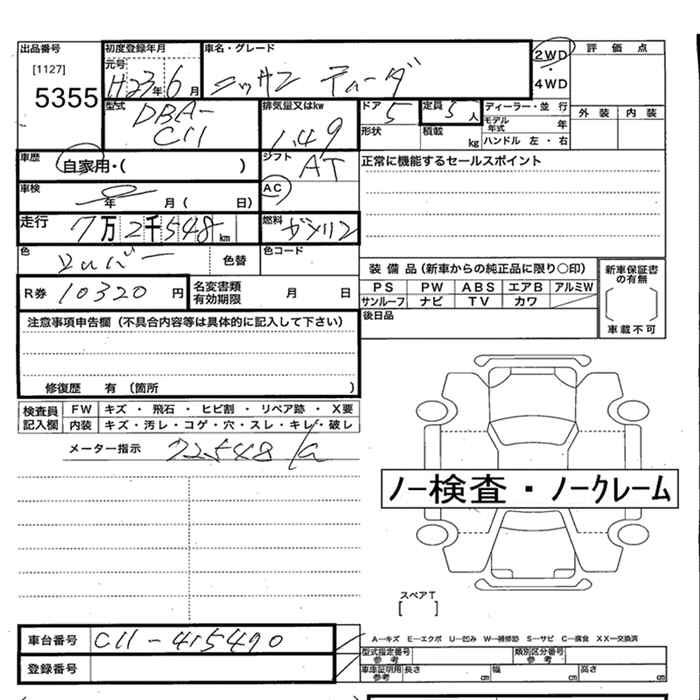 出品番号 初度登録年月 車名・グレード 2WD 評価点
[1127] 元号
5355 H23年6月 ニッサン ティーダ 4WD
型式 DBA-C11 排気量又はkw 1.49 ドア 5 定員 5人 ディーラー・並 行 外装 内装
形状 積載 kg モデル年式 年
ハンドル 左・右
車歴 自家用・( ) シフト AT 正常に機能するセールスポイント
車検 年 月( 日) AC
走行 7万2千548km 燃料 ガソリン
色 シルバー 色替 色コード
装備品(新車からの純正品に限り○印) 新車保証書の有無
R券 10320円 名変書類有効期限 月 日 PS PW ABS エアB アルミW
サンルーフ ナビ TV カワ 車載不可
注意事項申告欄(不具合内容等は具体的に記入して下さい) 後日品
修復歴 有(箇所 )
検査員記入欄 FW キズ・飛石・ヒビ割・リペア跡・X要
内装 キズ・汚レ・コゲ・穴・スレ・キレ・破レ
メーター指示 72548
ノー検査・ノークレーム
スペアT
[ ]
車台番号 C11-415490
A―キズ E―エクボ U―凹み W―補修跡 S―サビ C―腐食 XX―交換済
登録番号 型式指定番号 参考 類別区分番号 参考
車庫証明用参考 長さ cm 幅 cm 高さ cm